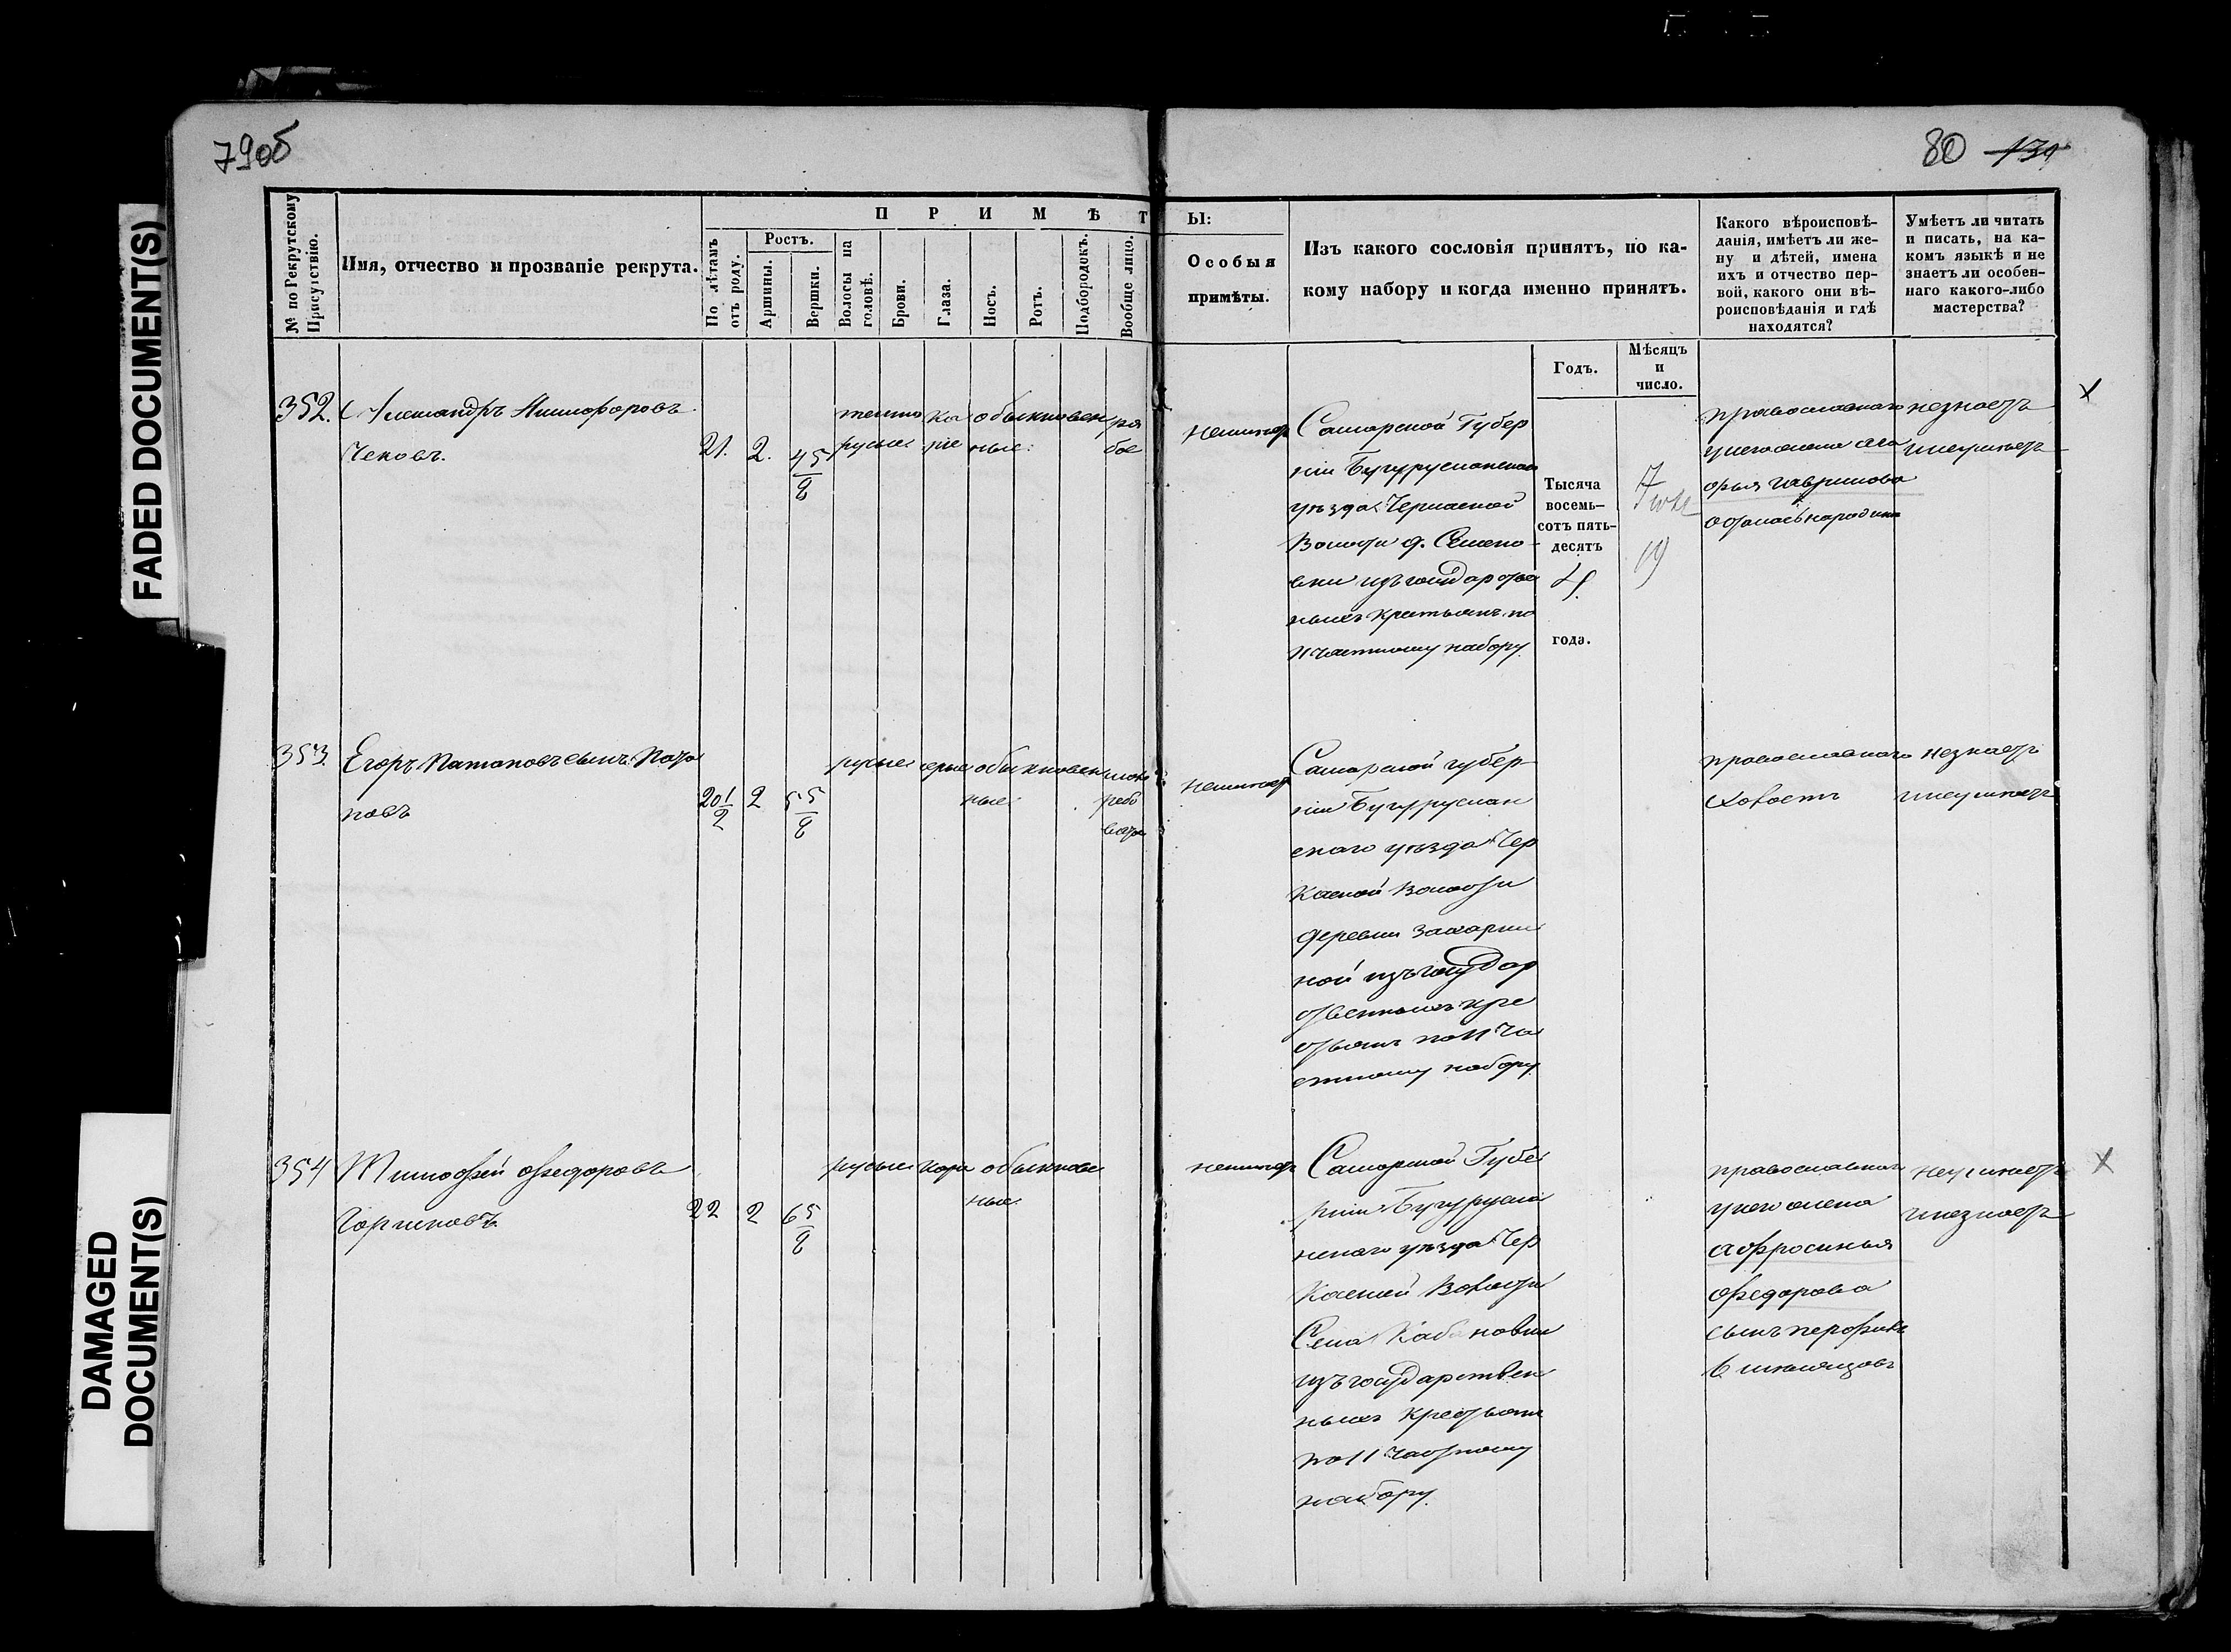 FADED DOCUMENT(S)
DAMAGED
DOCUMENT(S)
79об
80 131
№ по Рекрутскому
Присутствію.
Имя, отчество и прозваніе рекрута.
П Р И М Ѣ Т Ы:
По лѣтамъ
отъ роду.
Ростъ.
Аршины.
Вершки.
Волосы на
головѣ.
Брови.
Глаза.
Носъ.
Ротъ.
Подбородокъ.
Вообще лицо.
Особыя
примѣты.
Изъ какого сословія принятъ, по ка-
кому набору и когда именно принятъ.
Какого вѣроисповѣ-
данія, имѣетъ ли же-
ну и дѣтей, имена
ихъ и отчество пер-
вой, какого они вѣ-
роисповѣданія и гдѣ
находятся?
Умѣетъ ли читать
и писать, на ка-
комъ языкѣ и не
знаетъ ли особен-
наго какого-либо
мастерства?
Годъ.
Мѣсяцъ
и
число.
352. Александръ Никифоровъ
Чековъ.
21. 2. 4 5/8
темно
русые
ка
рие
обыкновен
ные
ря
бое
неимеетъ
Самарской Губер
ніи Бугурусланскаго
уѣзда Черкаской
Волости д. Семено
вки изъ государстве
ныхъ крестьянъ по
11 частному набору
Тысяча
восемь-
сотъ пять-
десятъ
года.
православнаго
у него жена
Гаврилова
осталась народине
незнаетъ
и неумѣетъ
х
353. Егоръ Патаповъ сынъ Пота
повъ
20 1/2 2 5 5/8
русые
серые
обыкновен
ные
неимеетъ
Самарской губер
ніи Бугуруслан
скаго уѣзда Чер
каской Волости
деревни Захаркин
ной изъ государ
ственныхъ кре
стьянъ по 11 ча
стному набору
православнаго
Холостъ
незнаетъ
и неумѣетъ
354 Тимофей Федоровъ
Горшковъ
22 2 6 5/8
русые
кари
обыкнове
ные
неимеетъ
Самарской Губе
рніи Бугурусла
нскаго уѣзда Чер
каской Волости
Села Кабановки
изъ государствен
ныхъ крестьянъ
по 11 частному
набору
православнаго
у него жена
Афросинья
Федорова
сынъ
6 месяцовъ
неумѣетъ
и незнаетъ
х